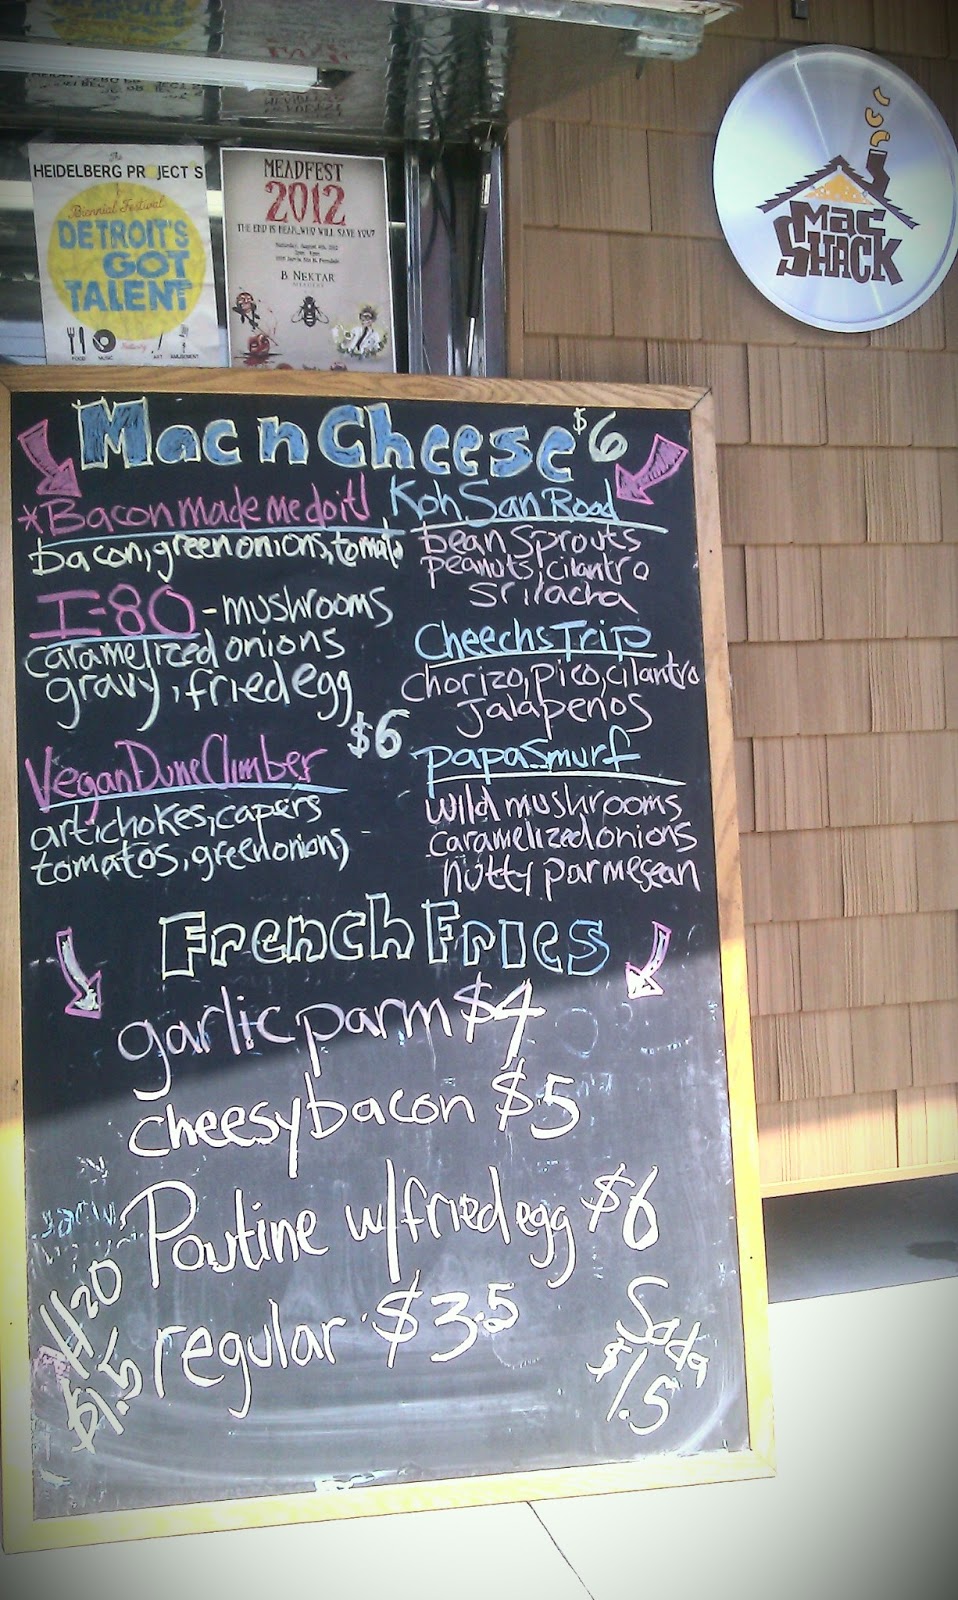 The
HEIDELBERG PROJECT'S
Biennial Festival
DETROIT'S
GOT
TALENT
FOOD MUSIC ART AMUSEMENT
MEADFEST
2012
THE END IS NEAR, WHO WILL SAVE YOU?
B. NEKTAR
MEADERY
MAC
SHACK
Mac n Cheese $6
*Bacon made me do it!
bacon, green onions, tomato
I-80 - mushrooms
caramelized onions
gravy, fried egg
$6
Vegan Dune Climber
artichokes, capers
tomatos, green onions
Koh San Road
bean sprouts
peanuts, cilantro
Sriracha
Cheechs Trip
chorizo, pico, cilantro
jalapenos
papa Smurf
wild mushrooms
caramelized onions
nutty parmesean
French Fries
garlic parm $4
cheesy bacon $5
Poutine w/ fried egg $6
regular $3.5
H20
$1.5
Soda
$1.5